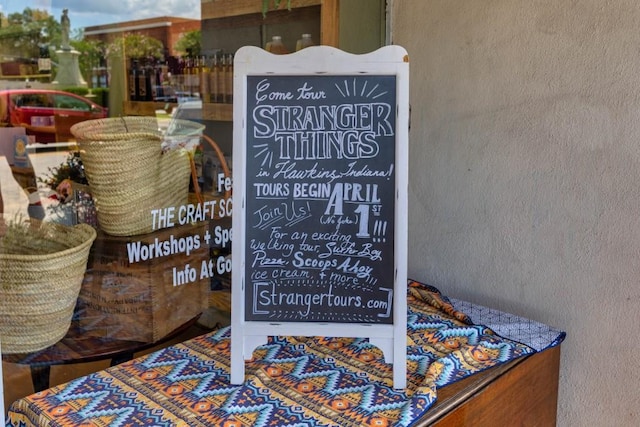 Come tour
STRANGER
THINGS
in Hawkins, Indiana!
TOURS BEGIN APRIL
1ST!!!
(No Joke)
Join Us!
For an exciting
walking tour, Surfer Boy
Pizza, Scoops Ahoy
ice cream, + more!!!
[Strangertours.com]
THE CRAFT
Workshops + Spe
Info At Go